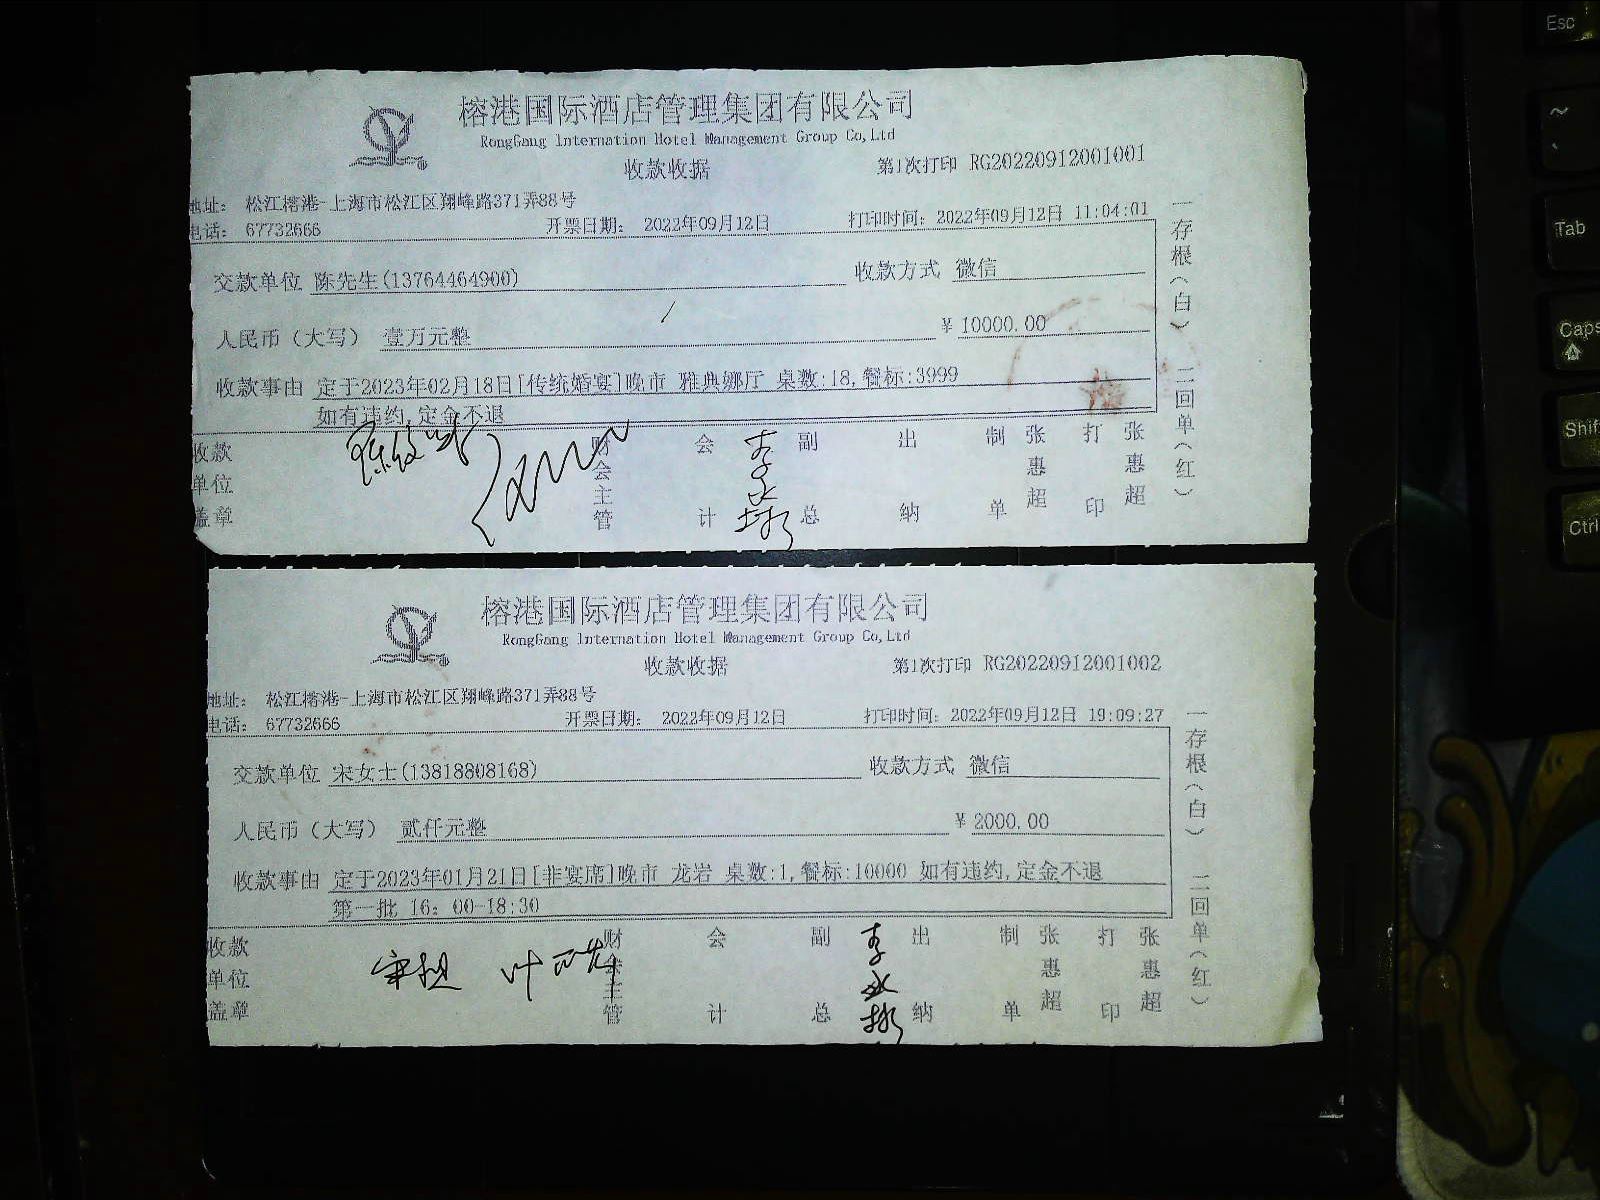 榕港国际酒店管理集团有限公司
RongGang Internation Hotel Management Group Co,Ltd
收款收据
第1次打印 RG20220912001001
地址： 松江榕港-上海市松江区翔峰路371弄88号
电话： 67732666
开票日期： 2022年09月12日
打印时间：2022年09月12日 11:04:01
交款单位 陈先生(13764464900)
收款方式 微信
人民币（大写） 壹万元整
¥ 10000.00
收款事由 定于2023年02月18日[传统婚宴]晚市 雅典娜厅 桌数:18,餐标:3999
如有违约,定金不退
收款单位盖章
财会主管
会计
副总
出纳
制单 张惠超
打印 张惠超
一存根（白） 二回单（红）
榕港国际酒店管理集团有限公司
RongGang Internation Hotel Management Group Co,Ltd
收款收据
第1次打印 RG20220912001002
地址： 松江榕港-上海市松江区翔峰路371弄88号
电话： 67732666
开票日期： 2022年09月12日
打印时间：2022年09月12日 19:09:27
交款单位 宋女士(13818808168)
收款方式 微信
人民币（大写） 贰仟元整
¥ 2000.00
收款事由 定于2023年01月21日[非宴席]晚市 龙岩 桌数:1,餐标:10000 如有违约,定金不退
第一批 16：00-18:30
收款单位盖章
财会主管
会计
副总
出纳
制单 张惠超
打印 张惠超
一存根（白） 二回单（红）
Esc
~
Tab
Caps
Shift
Ctrl